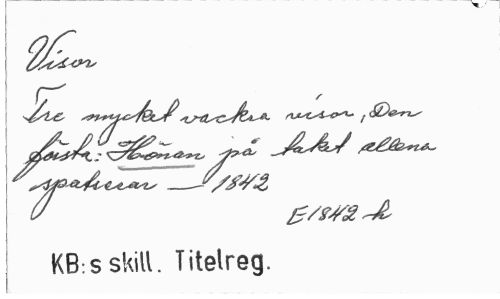 Visor
Tre mycket vackra visor, Den
första: Hönan på taket allena
spatserar — 1842
E1842 h
KB:s skill. Titelreg.